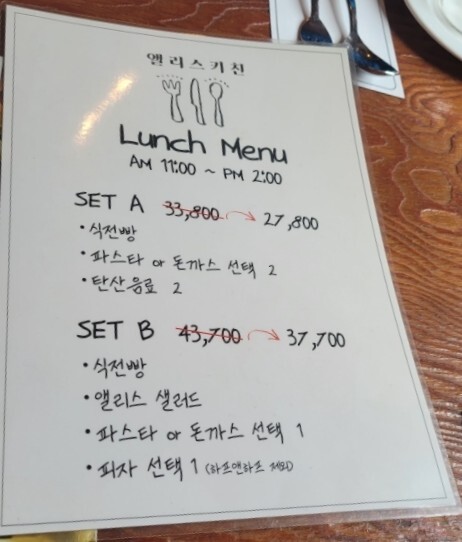 앨리스키친
Lunch Menu
AM 11:00 ~ PM 2:00
SET A 33,800 → 27,800
• 식전빵
• 파스타 or 돈까스 선택 2
• 탄산음료 2
SET B 43,700 → 37,700
• 식전빵
• 앨리스 샐러드
• 파스타 or 돈까스 선택 1
• 피자 선택 1 (하프앤하프 제외)